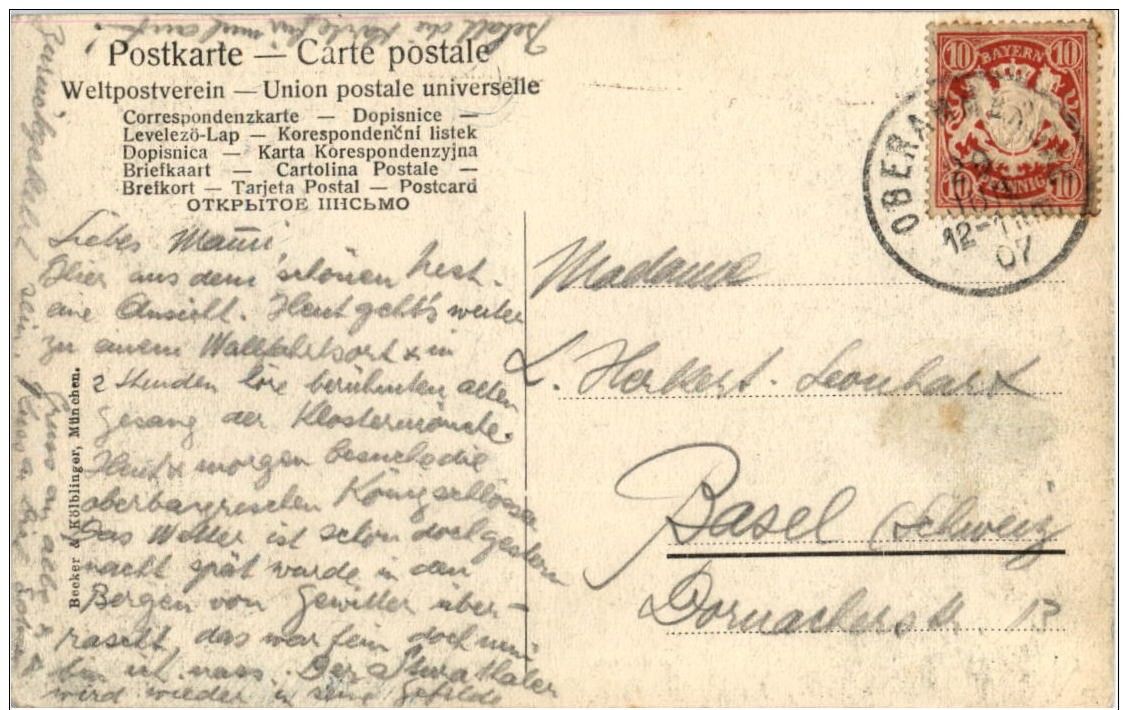 Postkarte — Carte postale
Weltpostverein — Union postale universelle
Correspondenzkarte — Dopisnice —
Levelező-Lap — Korespondenční listek
Dopisnica — Karta Korespondenzyjna
Briefkaart — Cartolina Postale —
Brefkort — Tarjeta Postal — Postcard
ОТКРЫТОЕ ПИСЬМО
10 BAYERN 10
10 PFENNIG 10
OBERAMMERGAU
12-1
07
Liebes
Hier aus dem schönen
eine Ansicht. Heut geht's weiter
zu einem Wallfahrtsort & in
2 Stunden höre berühmten alten
Gesang der Klostermönche.
Heut & morgen besuche die
oberbayrischen Königschlösser
Das Wetter ist schön doch gestern
nacht spät wurde in den
Bergen von Gewitter über-
rascht, das war fein doch nun
bin ich nass. Der
wird wieder in seine Gefilde
sein.
Gruss an alle &
behalt die Karte für mich auf!
Madame
L. Herbert-Leonhardt
Basel (Schweiz
Dornacherstr. 13
Becker & Kölblinger, München.